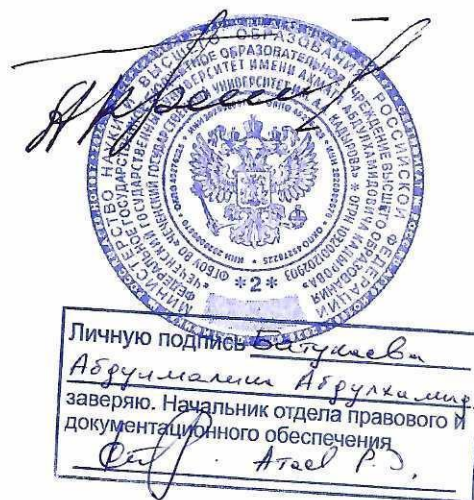 МИНИСТЕРСТВО НАУКИ И ВЫСШЕГО ОБРАЗОВАНИЯ РОССИЙСКОЙ ФЕДЕРАЦИИ
ФЕДЕРАЛЬНОЕ ГОСУДАРСТВЕННОЕ БЮДЖЕТНОЕ ОБРАЗОВАТЕЛЬНОЕ УЧРЕЖДЕНИЕ ВЫСШЕГО ОБРАЗОВАНИЯ
«ЧЕЧЕНСКИЙ ГОСУДАРСТВЕННЫЙ УНИВЕРСИТЕТ ИМЕНИ АХМАТА АБДУЛХАМИДОВИЧА КАДЫРОВА» * ОГРН 1032001202903
* 2 *
Личную подпись Батукаева
Абдулмалика Абдулхамид.
заверяю. Начальник отдела правового и
документационного обеспечения
Атаев Р.Э.